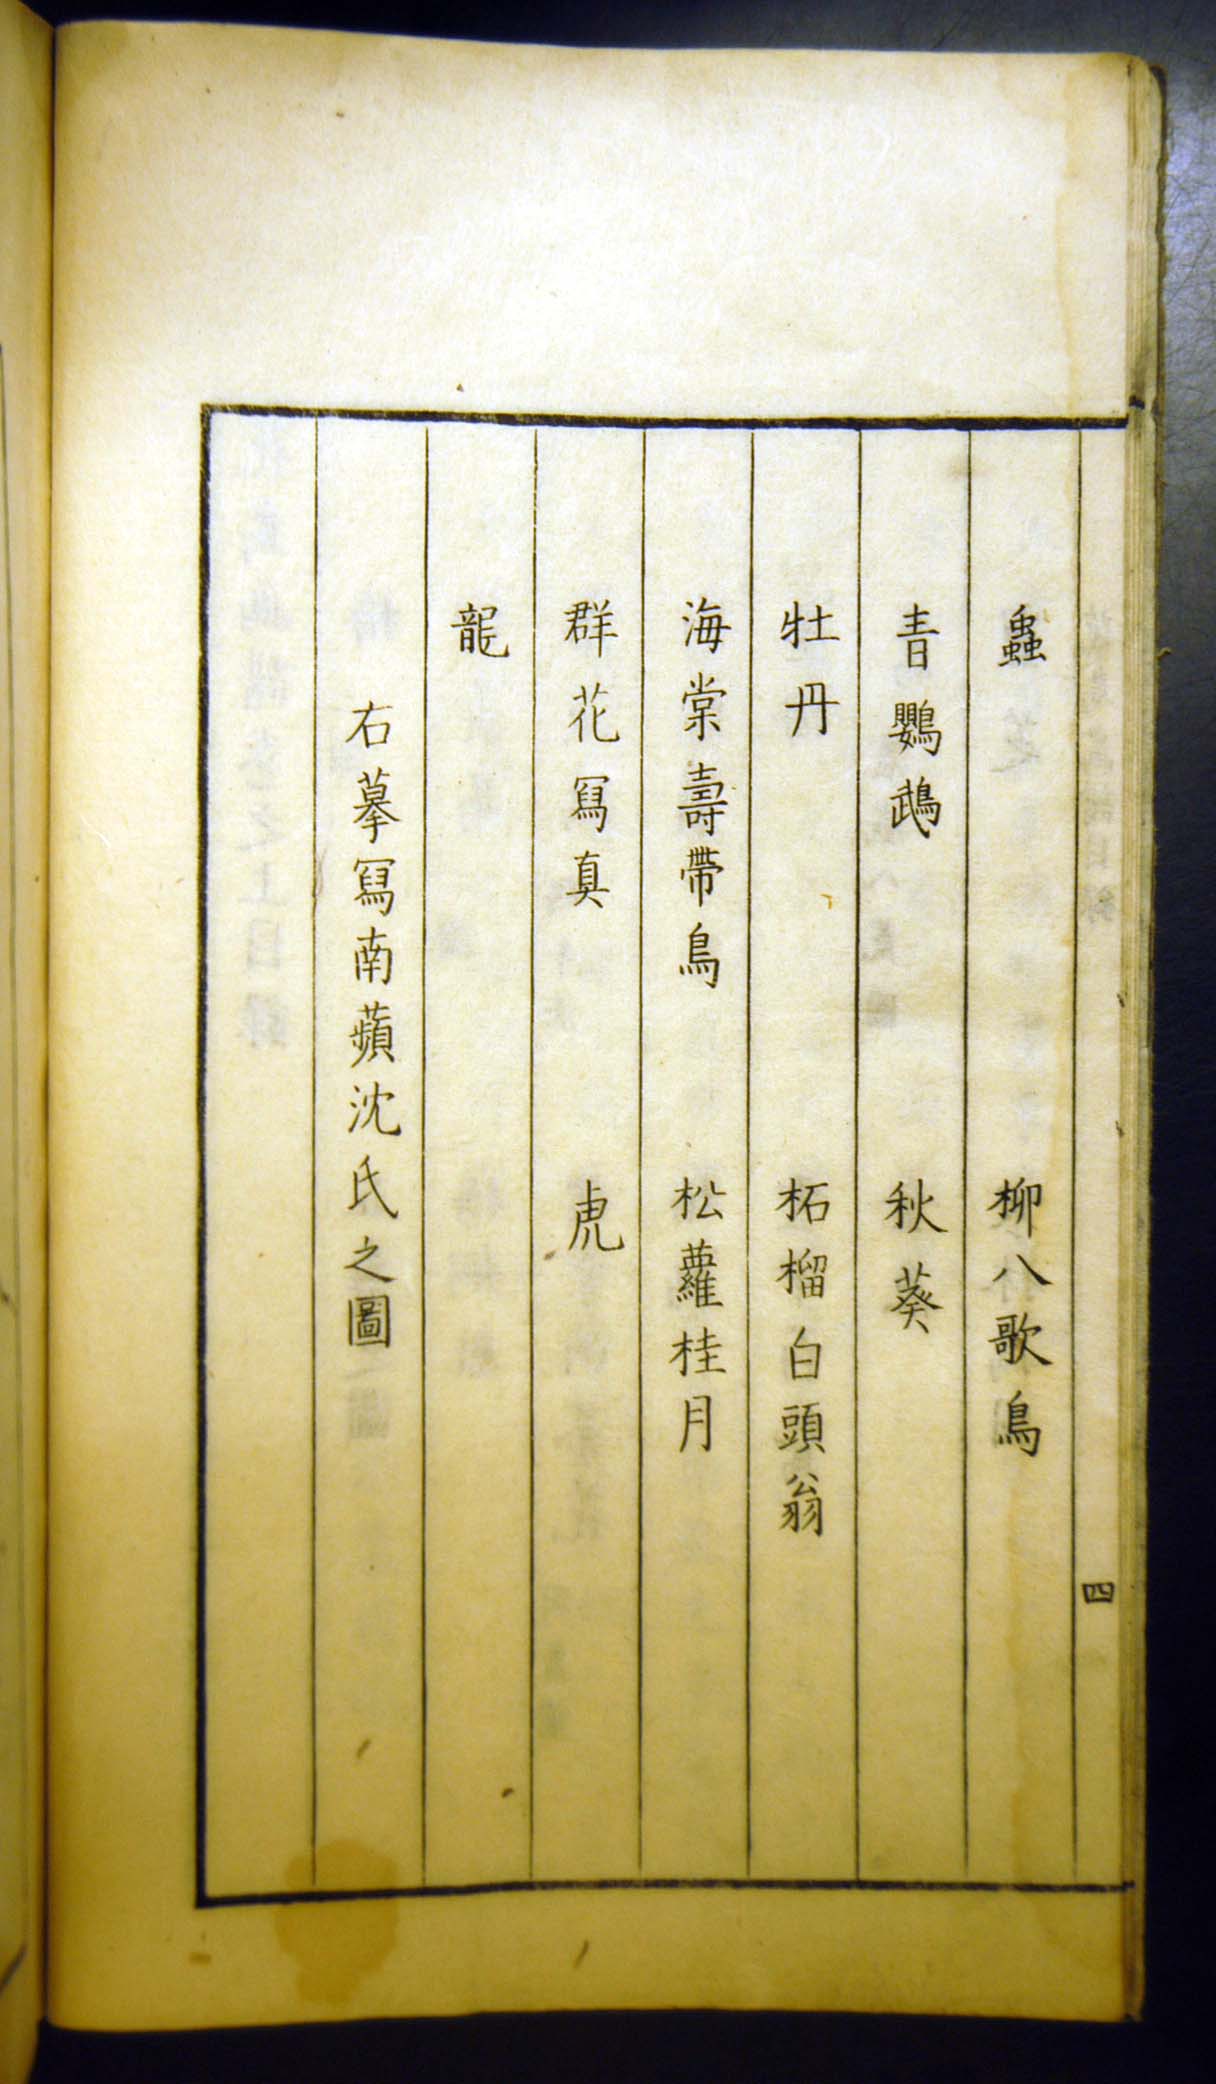 蟲　柳八歌鳥
青鸚鵡　秋葵
牡丹　柘榴白頭翁
海棠壽帶鳥　松蘿桂月
群花冩真　虎
龍
右摹冩南蘋沈氏之圖
四